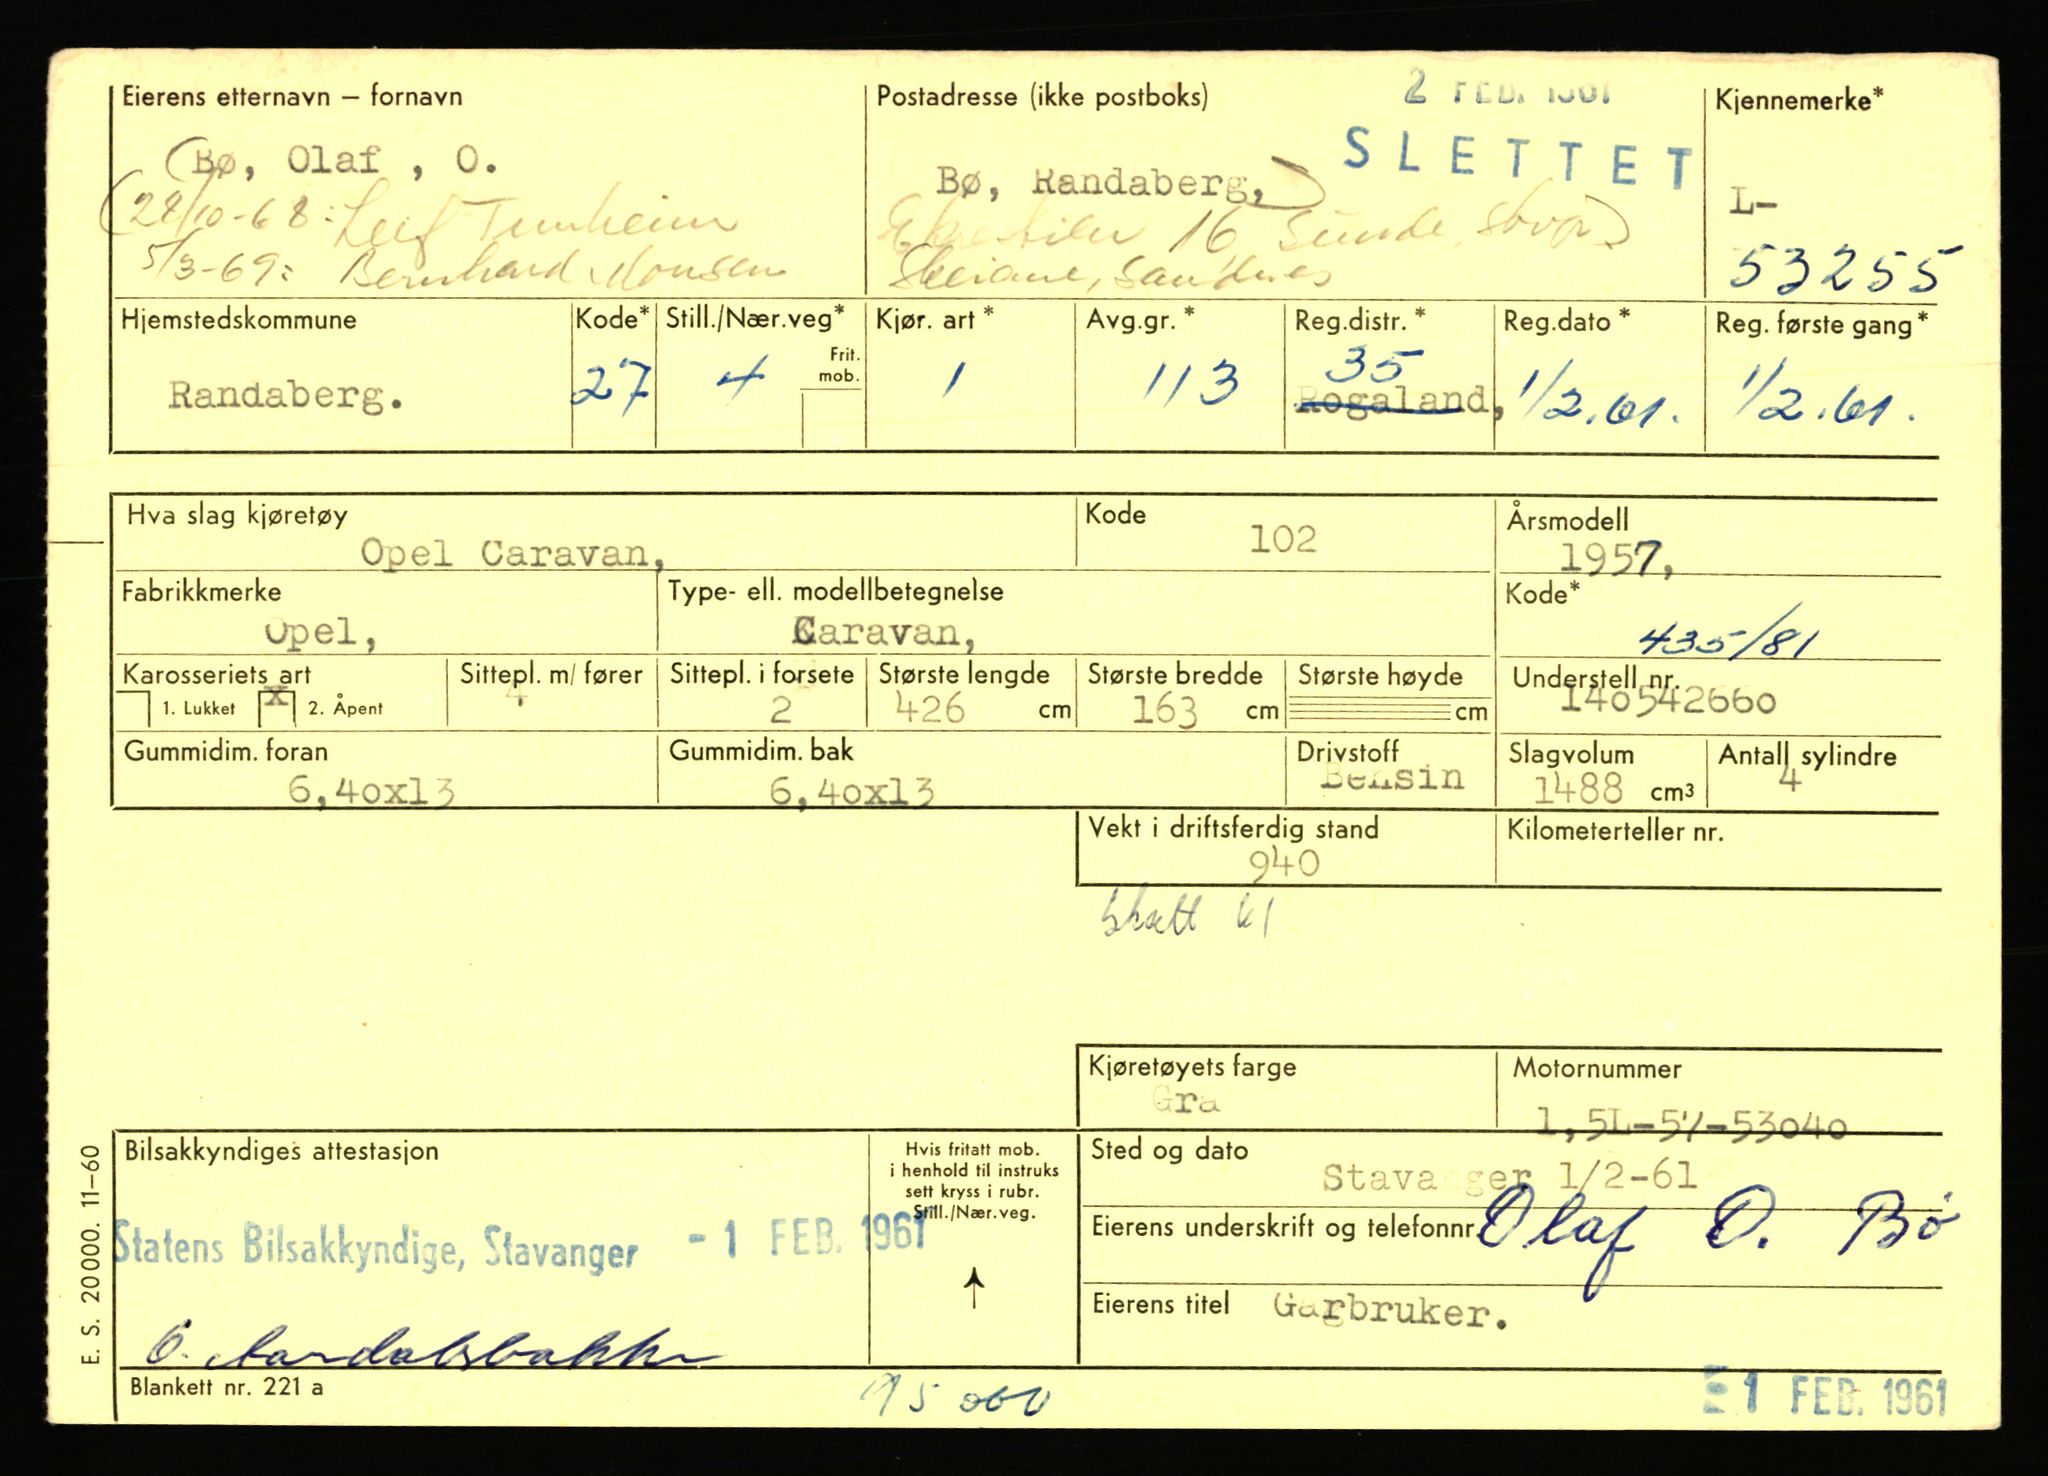 Eierens etternavn – fornavn
Postadresse (ikke postboks)
2 FEB. 1961
Kjennemerke*
SLETTET
(Bø, Olaf , O.
Bø, Randaberg,)
L-
53255
(28/10-68: Leif Tunheim
16 Sunde, Stvgr)
5/3-69: Bernhard Monsen
Skeiane, Sandnes
Hjemstedskommune
Kode*
Still./Nær.veg*
Kjør. art *
Avg.gr. *
Reg.distr. *
Reg.dato *
Reg. første gang*
Frit. mob.
Randaberg.
27
4
1
113
35
Rogaland,
1/2.61.
1/2.61.
Hva slag kjøretøy
Opel Caravan,
Kode
102
Årsmodell
1957,
Fabrikkmerke
Opel,
Type- ell. modellbetegnelse
Caravan,
Kode*
435/81
Karosseriets art
1. Lukket
x
2. Åpent
Sittepl. m/ fører
4
Sittepl. i forsete
2
Største lengde
426 cm
Største bredde
163 cm
Største høyde
cm
Understell nr.
140542660
Gummidim. foran
6,40x13
Gummidim. bak
6,40x13
Drivstoff
Bensin
Slagvolum
1488 cm³
Antall sylindre
4
Vekt i driftsferdig stand
940
Kilometerteller nr.
skatt kl
Kjøretøyets farge
Grå
Motornummer
1,5L-57-53040
Bilsakkyndiges attestasjon
Statens Bilsakkyndige, Stavanger
- 1 FEB. 1961
Hvis fritatt mob.
i henhold til instruks
sett kryss i rubr.
Still./Nær.veg.
↑
Sted og dato
Stavanger 1/2-61
Eierens underskrift og telefonnr.
Olaf O. Bø
Eierens titel
Garbruker.
O. Aardalsbakke
E. S. 20000. 11–60
Blankett nr. 221 a
95 000
1 FEB. 1961